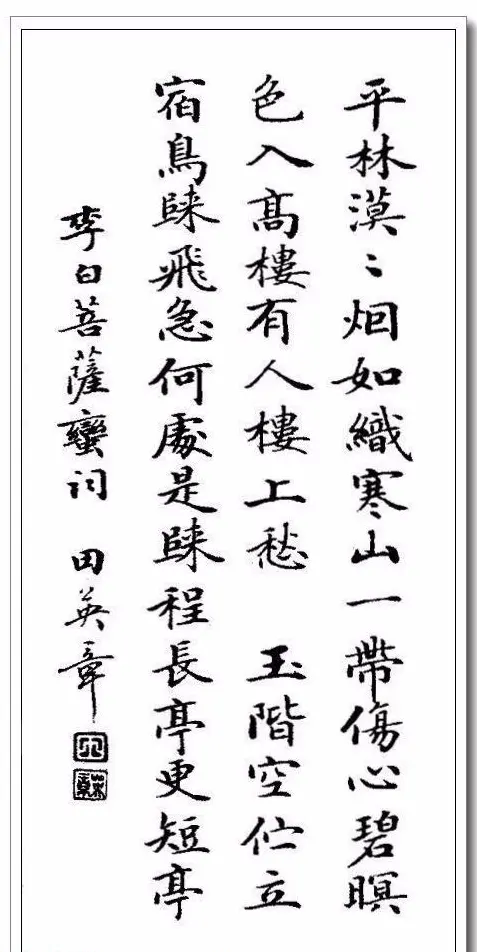 平林漠〻烟如織寒山一帶傷心碧暝
色入髙樓有人樓上愁 玉階空伫立
宿鳥歸飛急何處是歸程長亭更短亭
李白菩薩蠻詞 田英章